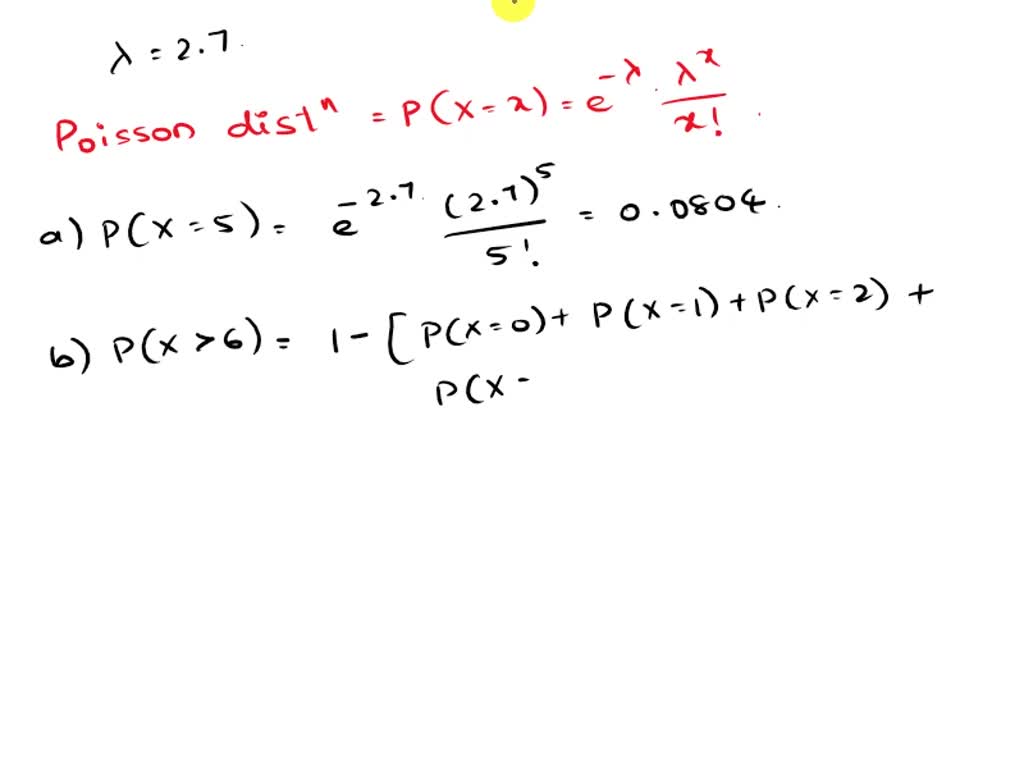 λ = 2.7.
Poisson distⁿ = P(X = x) = e^{-λ} · λ^x / x! .
a) P(X = 5) = e^{-2.7} · (2.7)^5 / 5! = 0.0804.
b) P(X > 6) = 1 - [ P(X = 0) + P(X = 1) + P(X = 2) +
P(X -